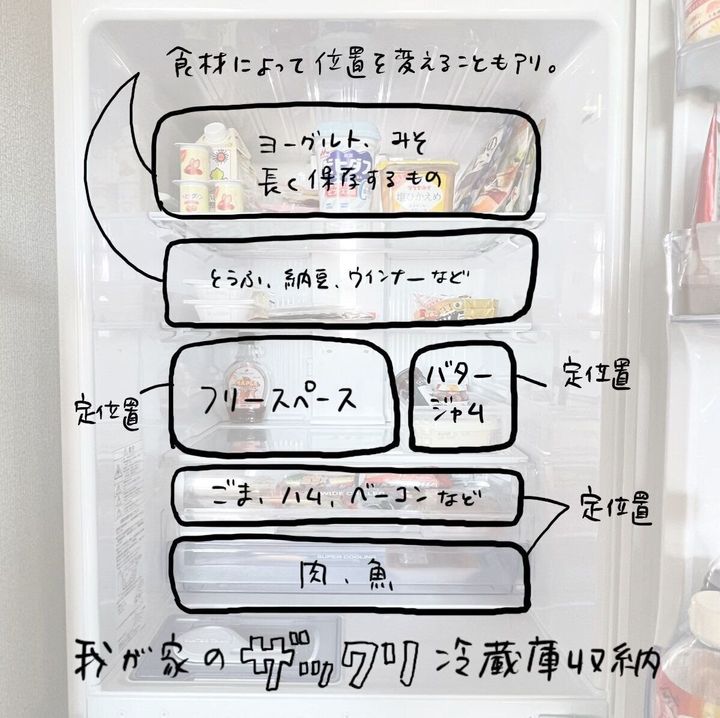 食材によって位置を変えることもアリ。
ヨーグルト、みそ
長く保存するもの
とうふ、納豆、ウインナーなど
定位置
フリースペース
バター
ジャム
定位置
ごま、ハム、ベーコンなど
定位置
WIDE
SUPER COOLING
肉、魚
我が家のザックリ冷蔵庫収納